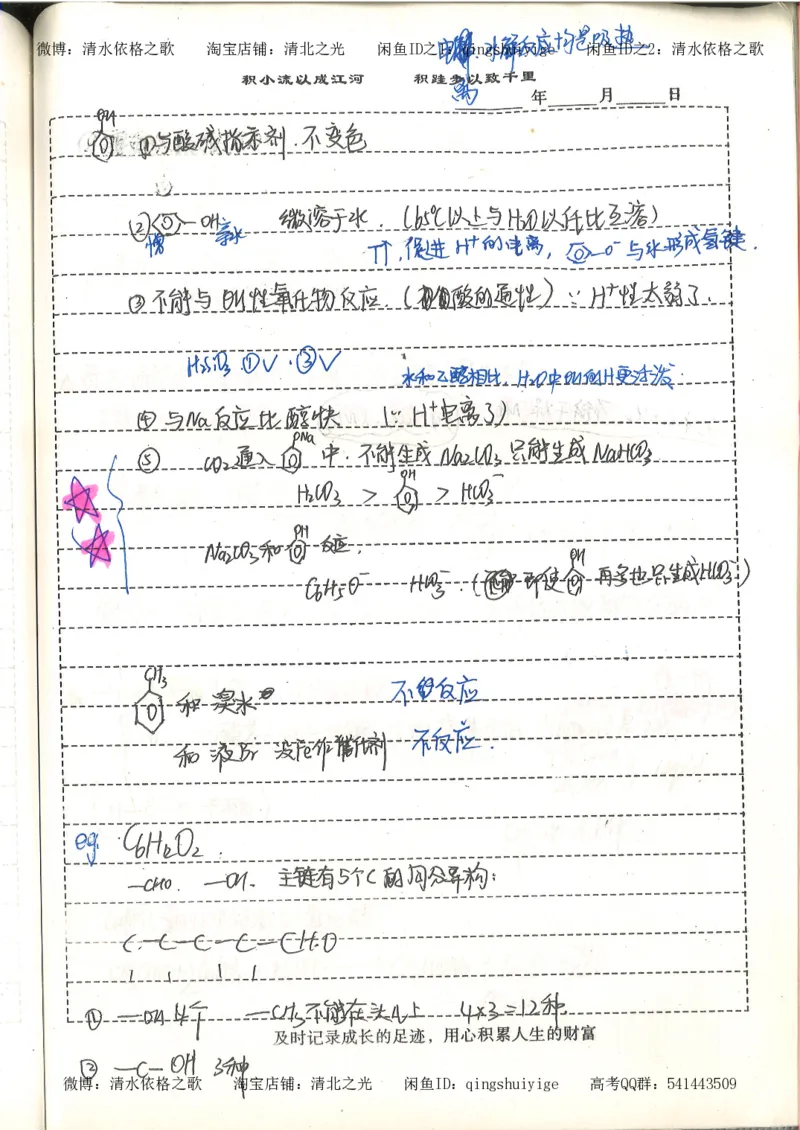 电离.水解反应均是吸热
微博：清水依格之歌 淘宝店铺：清北之光 闲鱼ID之1：qingshuiyige 闲鱼ID之2：清水依格之歌
积小流以成江河 积跬步以致千里
年 月 日
OH
①与酸碱指示剂.不变色
② -OH 微溶于水. (65℃以上与H₂O以任比互溶)
憎 亲水
T↑,促进H⁺的电离, -O⁻与水形成氢键.
③不能与 碱性氧化物反应. (酸的通性) ∵ H⁺性太弱了.
H₂SiO₃ ①√.③√
水和乙醇相比, H₂O中的H更活泼
④ 与Na反应比醇快 (∵ H⁺电离了)
ONa
⑤ CO₂通入 中.不能生成Na₂CO₃只能生成NaHCO₃
OH
H₂CO₃ > > HCO₃⁻
OH
Na₂CO₃和 反应.
OH
C₆H₅O⁻ HCO₃⁻. ( 即使 再多也只生成HCO₃⁻)
CH₃
和 溴水 不反应
和 液溴 没有作催化剂 不反应.
eg: C₆H₁₂O₂.
-CHO. -OH. 主链有5个C的同分异构:
C-C-C-C-CHO
① -OH 4个 -CH₃不能在头上 4×3=12种.
及时记录成长的足迹，用心积累人生的财富
② -C-OH 3种
微博：清水依格之歌 淘宝店铺：清北之光 闲鱼ID：qingshuiyige 高考QQ群：541443509